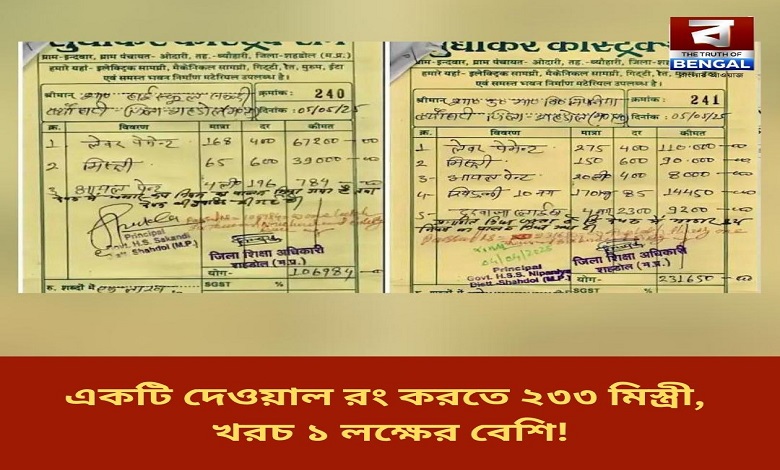 ब
THE TRUTH OF
BENGAL
सुधाकर कंस्ट्रक्शन
ग्राम-इन्दवार, ग्राम पंचायत - ओदारी, तह. -ब्यौहारी, जिला-शहडोल (म.प्र.)
हमारे यहां- इलेक्ट्रिक सामग्री, मैकेनिकल सामग्री, गिट्टी, रेत, मुरुम, ईंटा
एवं समस्त भवन निर्माण मटेरियल उपलब्ध है।
श्रीमान् क्रमांक: 240
दिनांक: 05/05/25
क्र. विवरण मात्रा दर कीमत
1 लेबर पेमेन्ट 168 400 67200=00
2 मिस्त्री 65 600 39000=00
3 आयल पेन्ट 4 ली 196 784=00
Principal
Govt. H.S. Sakandi
Distt. Shahdol (M.P.)
जिला शिक्षा अधिकारी
शहडोल (म.प्र.)
योग- 106984=00
रु. शब्दों में SGST %
सुधाकर कंस्ट्रक्शन
ग्राम-इन्दवार, ग्राम पंचायत - ओदारी, तह. -ब्यौहारी, जिला-शहडोल (म.प्र.)
हमारे यहां- इलेक्ट्रिक सामग्री, मैकेनिकल सामग्री, गिट्टी, रेत, मुरुम, ईंटा
एवं समस्त भवन निर्माण मटेरियल उपलब्ध है।
श्रीमान् क्रमांक: 241
दिनांक: 05/05/25
क्र. विवरण मात्रा दर कीमत
1 लेबर पेमेन्ट 275 400 110000=00
2 मिस्त्री 150 600 90000=00
3 आयल पेन्ट 20 ली 400 8000=00
4 10 नग 170kg 85 14450=00
5 4 नग 2300 9200=00
04/04/2025
Principal
Govt. H.S.S. Nipaniya
Distt.-Shahdol (M.P.)
जिला शिक्षा अधिकारी
शहडोल (म.प्र.)
योग- 231650=00
SGST %
একটি দেওয়াল রং করতে ২৩৩ মিস্ত্রী,
খরচ ১ লক্ষের বেশি!